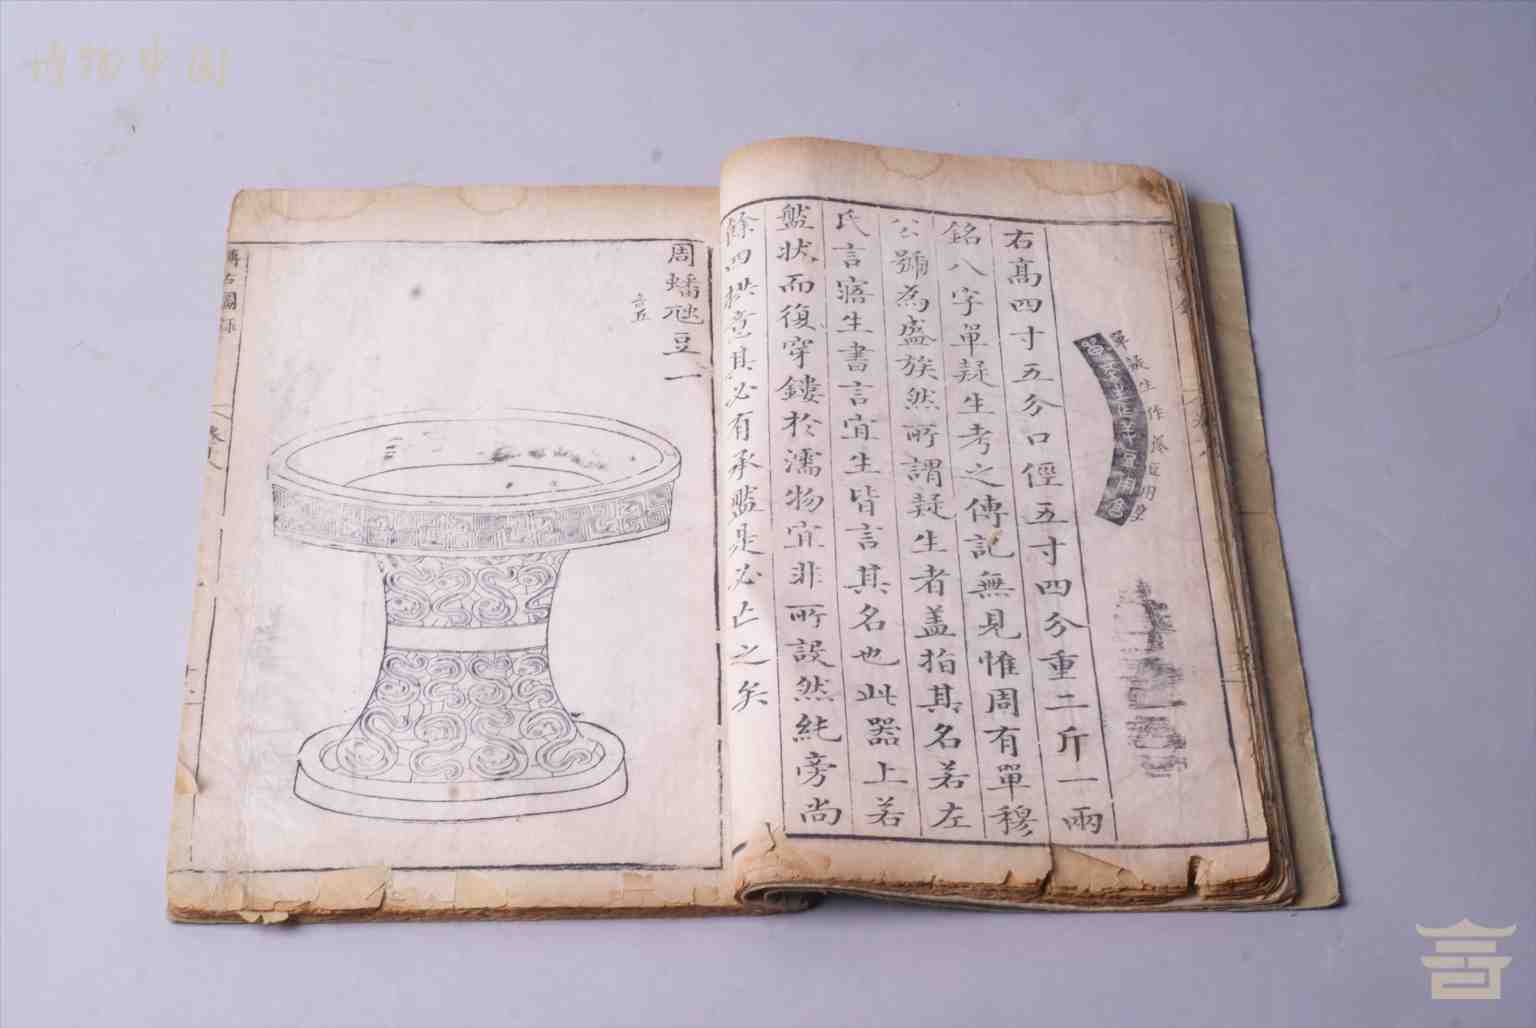 單疑生作養豆用享
右高四寸五分口徑五寸四分重二斤一兩
銘八字單疑生考之傳記無見惟周有單穆
公號為盛族然所謂疑生者蓋指其名若左
氏言寤生書言宜生皆言其名也此器上若
盤状而復穿鏤於濡物宜非所設然純旁尚
餘四拱意其必有承盤是必亡之矣
周蟠虺豆一
博古圖錄
卷十八
博物中国